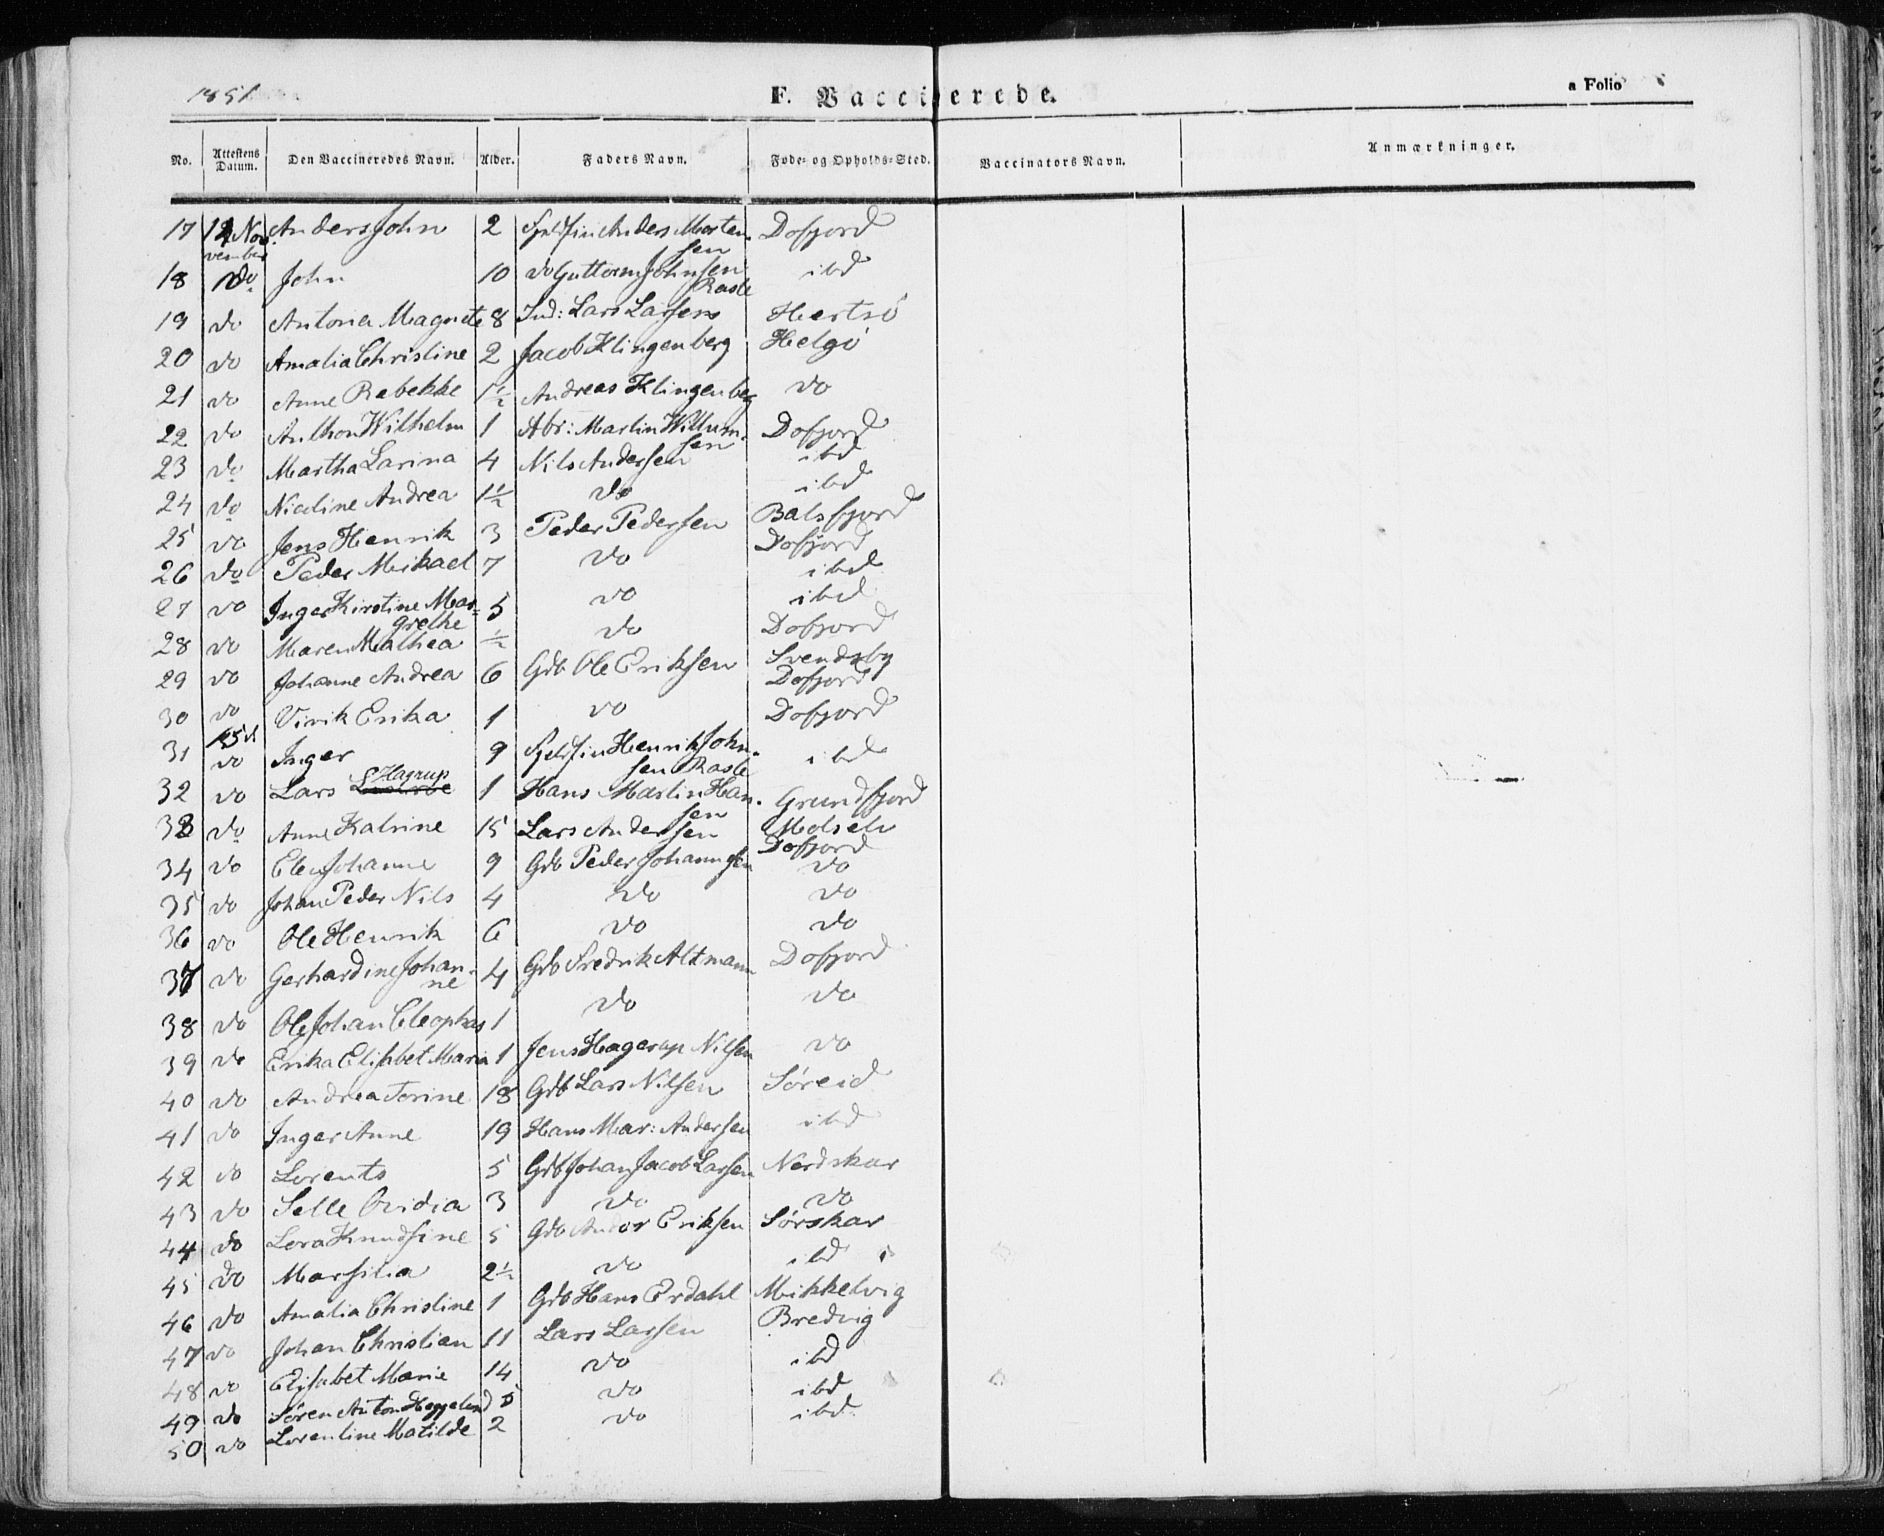 1851
F. Vaccinerede.
a Folio
No. Attestens Datum. Den Vaccineredes Navn. Alder. Faders Navn. Føde- og Opholds-Sted. Vaccinators Navn. Anmærkninger.
17 14 November Anders John 2 Anders Morten- Dofjord
sen
18 do John 10 do Guttorm Johnsen ibd
Raste
19 do Antona Magnete 8 Ind: Lars Larsens Hertsö
20 do Amalia Christine 2 Jacob Klingenberg Helgö
21 do Anne Rebekke 1½ Andreas Klingenberg do
22 do Anthon Wilhelm 1 Abr: Martin Willum- Dofjord
sen
23 do Martha Larina 4 Nils Andersen ibd
24 do Nicoline Andrea 1½ do ibd
25 do Jens Henrik 3 Peder Pedersen Balsfjord
Dofjord
26 do Peder Mikael 7 do ibd
27 do Inger Kirstine Mar- 5 do ibd
grethe
28 do Maren Mathea ½ do Dofjord
29 do Johanne Andrea 6 Gdb Ole Eriksen Svendsby
Dofjord
30 do Virik Erika 1 do Dofjord
31 15d do Inger 9 Henrik John- ibd
sen Raste
32 do Lars Hagrup 1 Hans Martin Han- Grundfjord
sen
33 do Anne Katrine 15 Lars Andersen Molselv
Dofjord
34 do Elen Johanne 9 Gdb Peder Johannesen do
35 do Johan Peder Nils 4 do do
36 do Ole Henrik 6 do do
37 do Gerhardine Johan- 4 Gdb Fredrik Altmann Dofjord
ne
38 do Ole Johan Cleophas 1 do do
39 do Erika Elisabet Maria 1 Jens Hagerup Nilsen do
40 do Andrea Torine 18 Gdb Lars Nilsen Søreid
41 do Inger Anne 19 Hans Mar: Andersen ibd
42 do Lorents 5 Gdb Johan Jacob Larsen Nordskar
43 do Selle Ovidia 3 do do
44 do Lora Knudsine 5 Gdb Andor Eriksen Sørskar
45 do Marsilia 2½ do ibd
46 do Amalia Christine 1 Gdb Hans Erdahl Mikkelvig
47 do Johan Christian 11 Lars Larsen Bredvig
48 do Elisabet Marie 14 do ibd
49 do Søren Anton Heggelund 5 do ibd
50 do Lorentine Matilde 2 do ibd